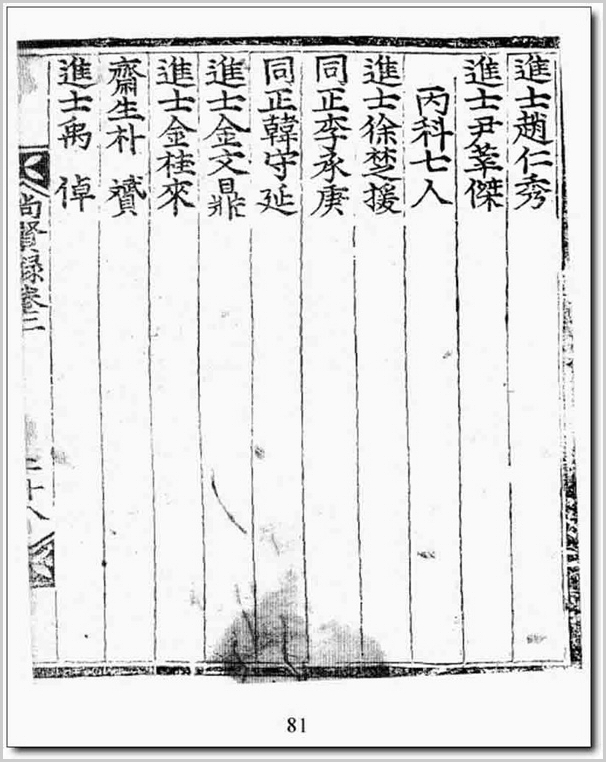 進士趙仁秀
進士尹莘傑
丙科七人
進士徐楚援
同正李承庚
同正韓守延
進士金文鼎
進士金桂來
齋生朴 贇
進士禹 倬
尚賢録卷三
二十八
81